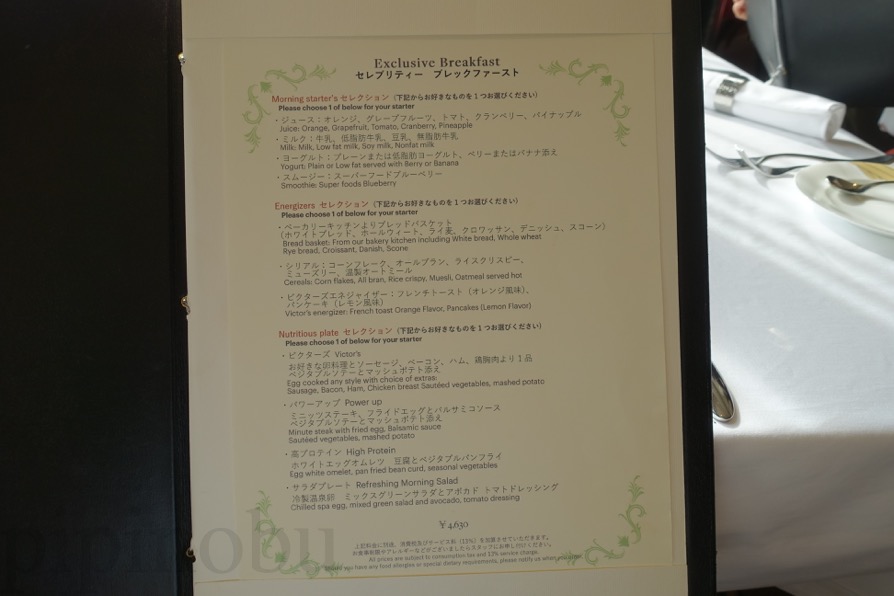 Exclusive Breakfast
セレブリティー ブレックファースト
Morning starter's セレクション (下記からお好きなものを1つお選びください)
Please choose 1 of below for your starter
・ジュース：オレンジ、グレープフルーツ、トマト、クランベリー、パイナップル
Juice: Orange, Grapefruit, Tomato, Cranberry, Pineapple
・ミルク：牛乳、低脂肪牛乳、豆乳、無脂肪牛乳
Milk: Milk, Low fat milk, Soy milk, Nonfat milk
・ヨーグルト：プレーンまたは低脂肪ヨーグルト、ベリーまたはバナナ添え
Yogurt: Plain or Low fat served with Berry or Banana
・スムージー：スーパーフードブルーベリー
Smoothie: Super foods Blueberry
Energizers セレクション (下記からお好きなものを1つお選びください)
Please choose 1 of below for your starter
・ベーカリーキッチンよりブレッドバスケット
(ホワイトブレッド、ホールウィート、ライ麦、クロワッサン、デニッシュ、スコーン)
Bread basket: From our bakery kitchen including White bread, Whole wheat
Rye bread, Croissant, Danish, Scone
・シリアル：コーンフレーク、オールブラン、ライスクリスピー、
ミューズリー、温製オートミール
Cereals: Corn flakes, All bran, Rice crispy, Muesli, Oatmeal served hot
・ビクターズエネジャイザー：フレンチトースト (オレンジ風味)、
パンケーキ (レモン風味)
Victor's energizer: French toast Orange Flavor, Pancakes (Lemon Flavor)
Nutritious plate セレクション (下記からお好きなものを1つお選びください)
Please choose 1 of below for your starter
・ビクターズ Victor's
お好きな卵料理とソーセージ、ベーコン、ハム、鶏胸肉より1品
ベジタブルソテーとマッシュポテト添え
Egg cooked any style with choice of extras:
Sausage, Bacon, Ham, Chicken breast Sautéed vegetables, mashed potato
・パワーアップ Power up
ミニッツステーキ、フライドエッグとバルサミコソース
ベジタブルソテーとマッシュポテト添え
Minute steak with fried egg, Balsamic sauce
Sautéed vegetables, mashed potato
・高プロテイン High Protein
ホワイトエッグオムレツ 豆腐とベジタブルパンフライ
Egg white omelet, pan fried bean curd, seasonal vegetables
・サラダプレート Refreshing Morning Salad
冷製温泉卵 ミックスグリーンサラダとアボカド トマトドレッシング
Chilled spa egg, mixed green salad and avocado, tomato dressing
￥4,630
上記料金に別途、消費税及びサービス料 (13%) を加算させていただきます。
お食事制限やアレルギーなどがございましたらスタッフにお申し付けください。
All prices are subject to consumption tax and 13% service charge.
Should you have any food allergies or special dietary requirements, please notify us when you order.